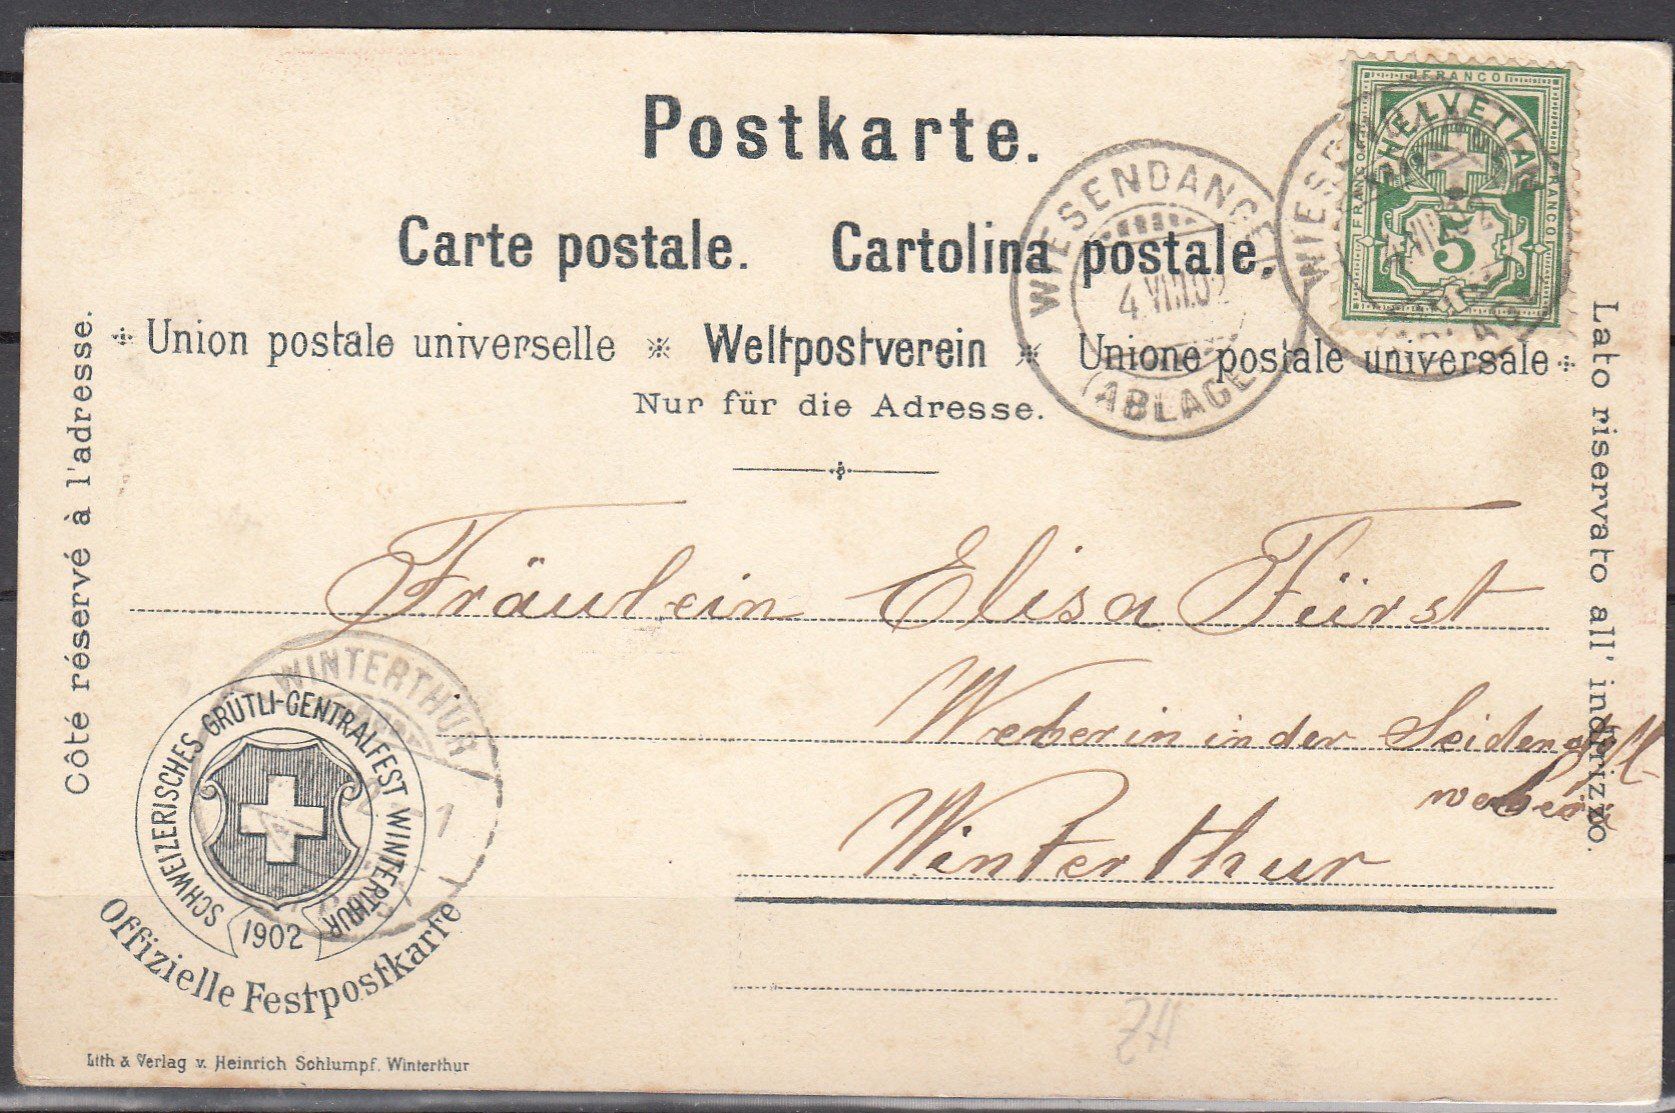 Postkarte.
Carte postale. Cartolina postale.
Union postale universelle Weltpostverein Unione postale universale
Nur für die Adresse.
Côté réservé à l'adresse.
Lato riservato all' indirizzo.
FRANCO
FRANCO
FRANCO
HELVETIA
5
WIESENDANGEN
4.VIII.02
(ABLAGE)
Fräulein Elisa Fürst
Weberin in der Seiden
weberei
Winterthur
WINTERTHUR
SCHWEIZERISCHES GRÜTLI-CENTRALFEST WINTERTHUR
1902
Offizielle Festpostkarte
Lith & Verlag v. Heinrich Schlumpf. Winterthur
ZH